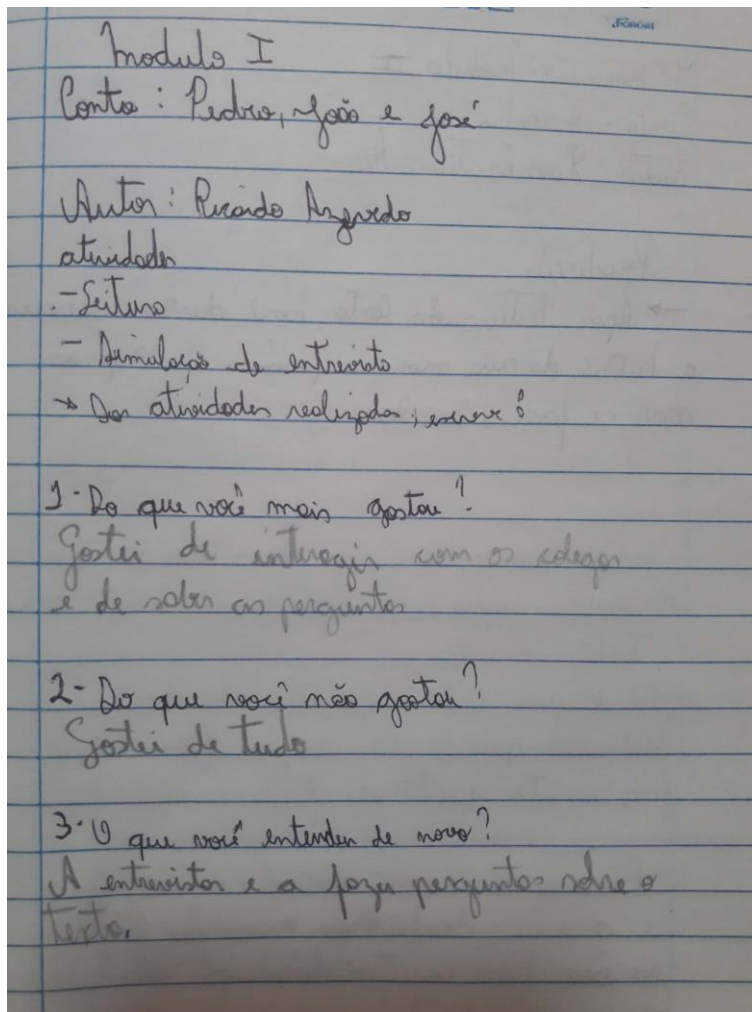 Modulo I
Conto: Pedro, João e José
Autor: Ricardo Azevedo
atividades
- Leitura
- Simulação de entrevista
→ Das atividades realizadas, escreve:
1- Do que você mais gostou?
Gostei de interagir com os colegas
e de saber as perguntas
2- Do que você não gostou?
Gostei de tudo
3- O que você entendeu de novo?
A entrevistar e a fazer perguntas sobre o
texto.